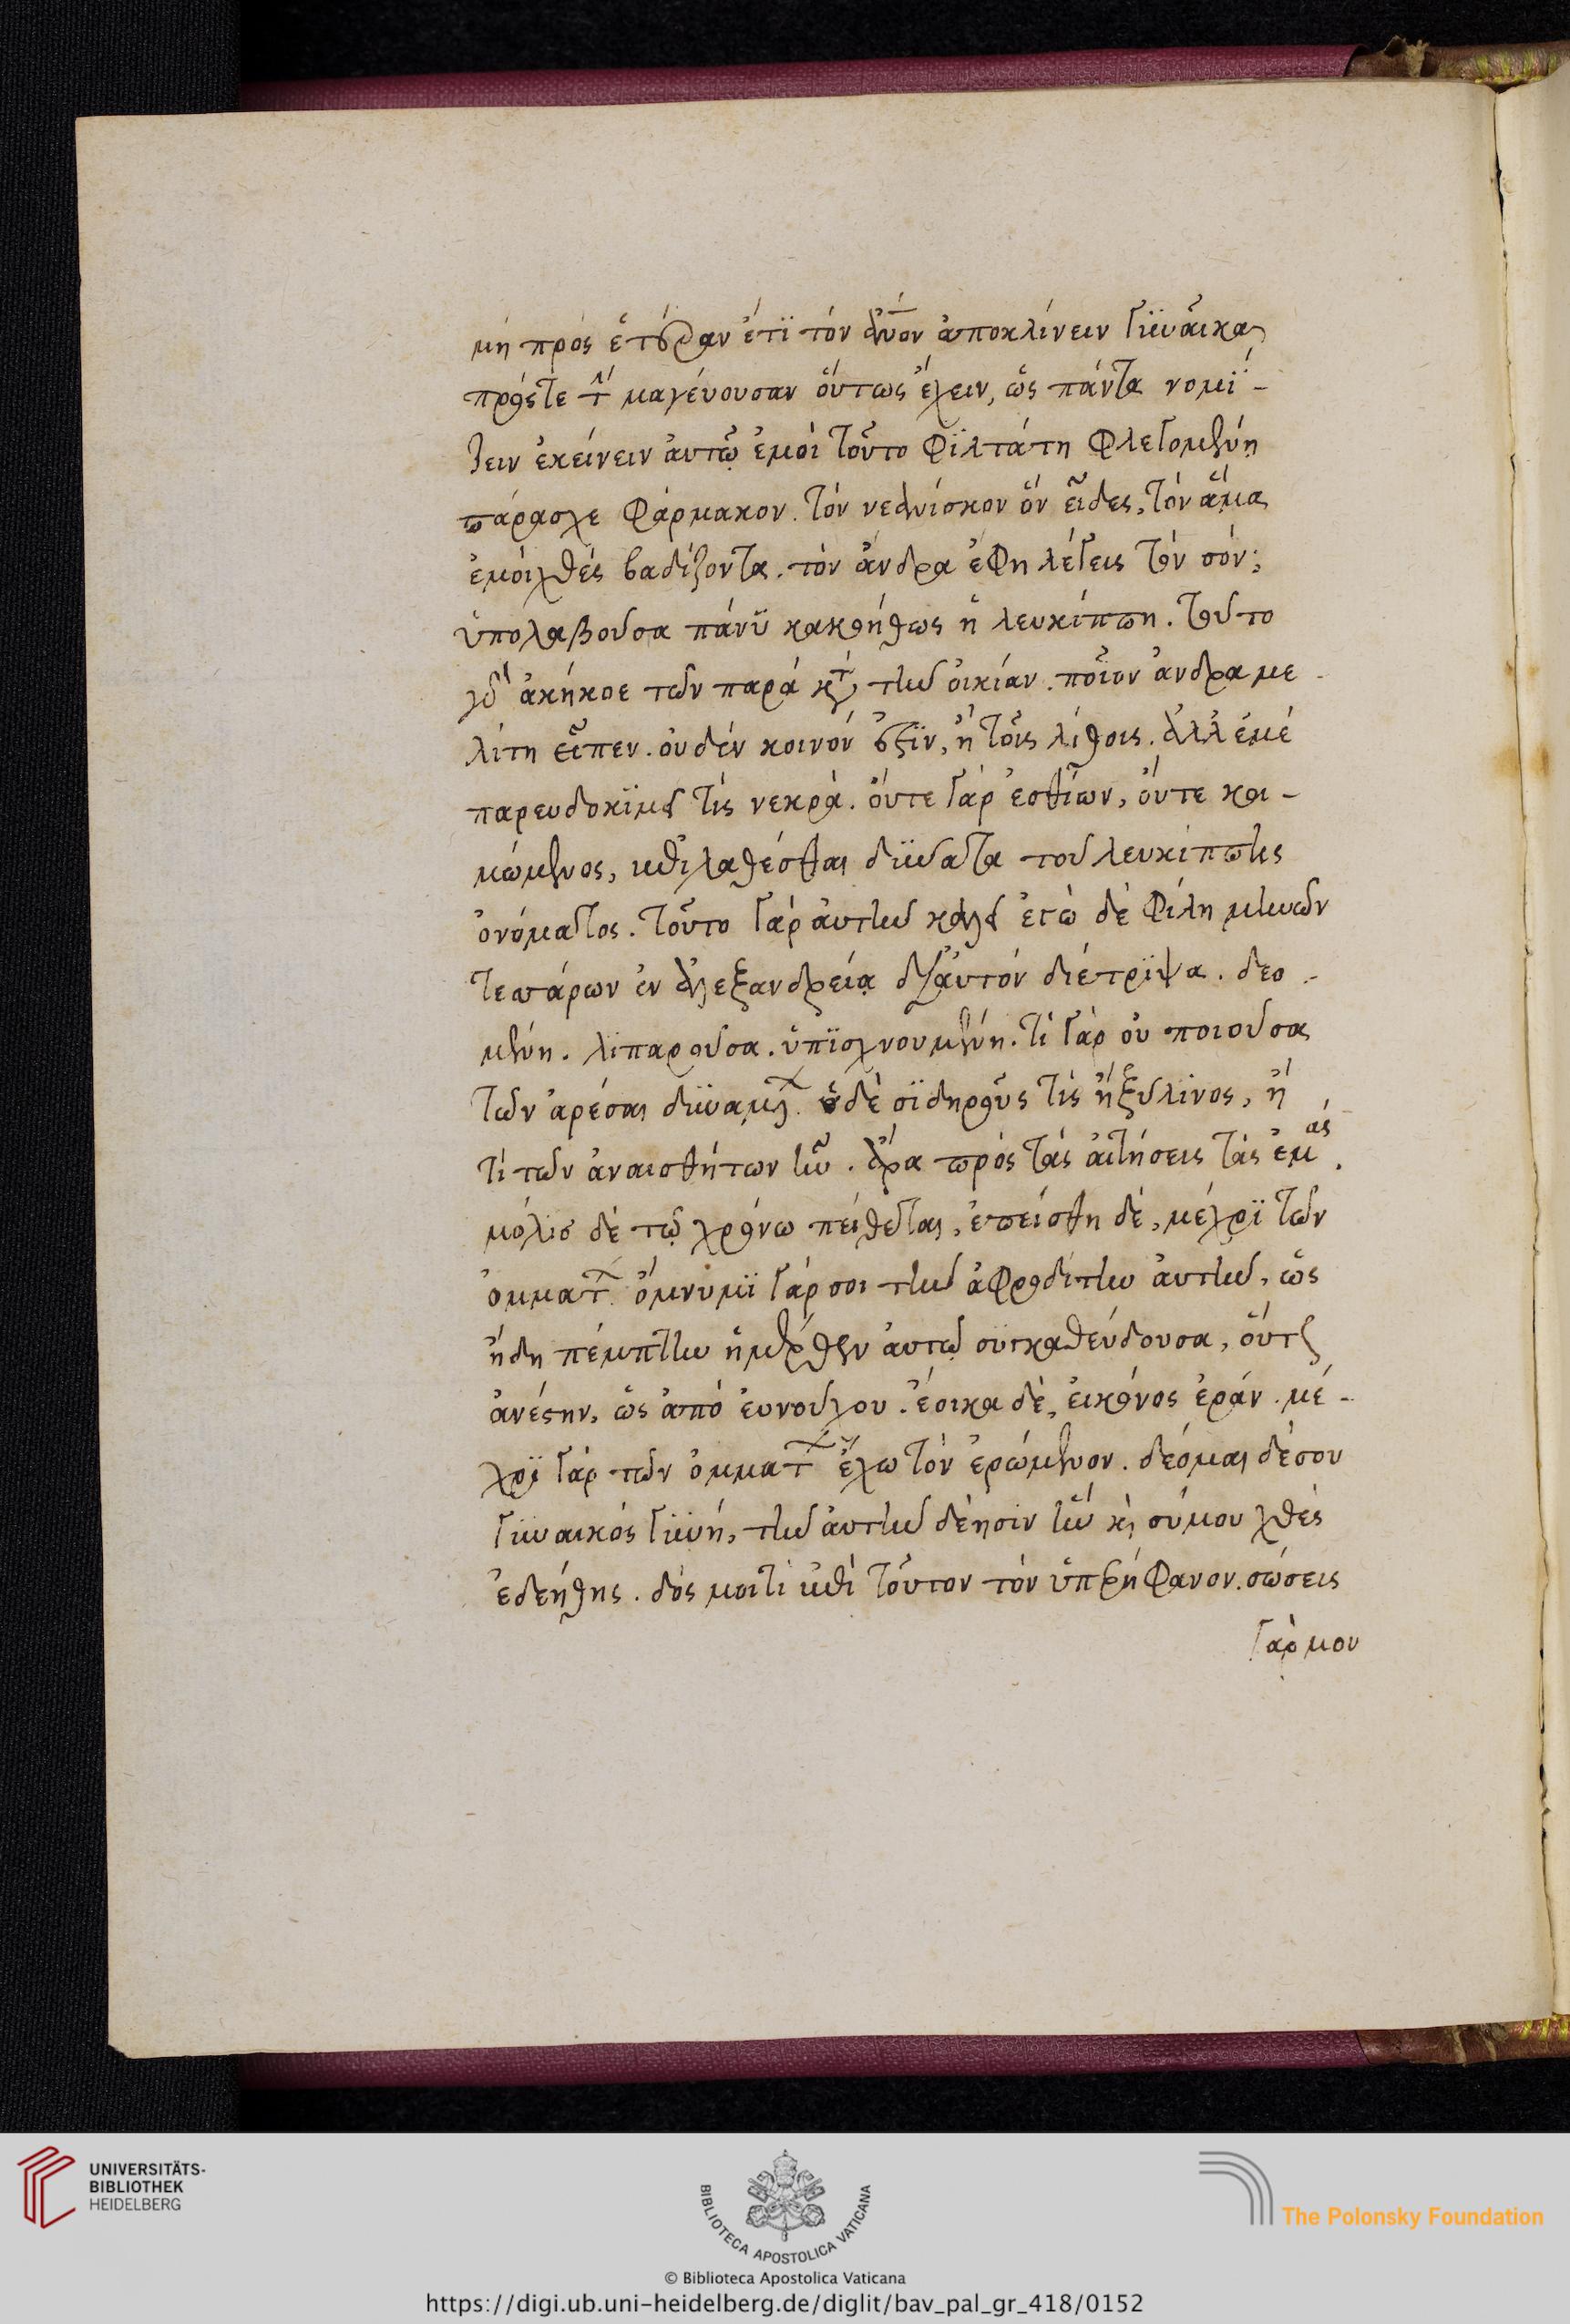 μὴ πρὸς ἑτέραν ἔτι τὸν ἄνον ἀποκλίνειν γυναῖκα,
πρός τε τὴν μαγεύουσαν οὕτως ἔχειν, ὡς πάντα νομί-
ζειν ἐκείνειν αὐτῷ ἐμοὶ τοῦτο φιλτάτη φλεγομένη
πάρασχε φάρμακον. τὸν νεανίσκον ὃν εἶδες, τὸν ἅμα
ἐμοὶ χθὲς βαδίζοντα. τὸν ἄνδρα ἔφη λέγεις τὸν σόν;
ὑπολαβοῦσα πάνυ κακοήθως ἡ λευκίππη. τοῦτο
γὰρ ἀκήκοε τῶν παρὰ κατὰ τὴν οἰκίαν. ποῖον ἄνδρα με-
λίτη εἶπεν. οὐδὲν κοινὸν ἐστὶν, ἢ τοῖς λίθοις. ἀλλ' ἐμὲ
παρευδοκιμεῖ τὶς νεκρά. οὔτε γὰρ ἐσθίων, οὔτε κοι-
μώμενος, ἐπιλαθέσθαι δύναται τοῦ λευκίππης
ὀνόματος. τοῦτο γὰρ αὐτὴν καλεῖ ἐγὼ δὲ φίλη μηνῶν
τεσσάρων ἐν ἀλεξανδρείᾳ δι' αὐτὸν διέτριψα. δεο-
μένη. λιπαροῦσα. ὑπισχνουμένη. τί γὰρ οὐ ποιοῦσα
τῶν ἀρέσαι δυναμένων. ὁ δὲ σιδηροῦς τίς ἢ ξύλινος, ἤ
τί τῶν ἀναισθήτων ἦν. ἄρα πρὸς τὰς αἰτήσεις τὰς ἐμάς.
μόλις δὲ τῷ χρόνω πείθεται, ἐπείσθη δὲ, μέχρι τῶν
ὀμμάτων. ὄμνυμι γάρ σοι τὴν ἀφροδίτην αὐτὴν, ὡς
ἤδη πέμπτην ἡμέραν αὐτῷ συγκαθεύδουσα, οὕτως
ἀνέστην, ὡς ἀπὸ εὐνούχου. ἔοικα δὲ, εἰκόνος ἐρᾶν. μέ-
χρι γὰρ τῶν ὀμμάτων ἔχω τὸν ἐρώμενον. δέομαι δέ σου
γυναικὸς γυνή, τὴν αὐτὴν δέησιν ἣν καὶ σύ μου χθὲς
ἐδεήθης. δός μοι τὶ ἐπὶ τοῦτον τὸν ὑπερήφανον. σώσεις
γάρ μου
UNIVERSITÄTS-
BIBLIOTHEK
HEIDELBERG
BIBLIOTECA APOSTOLICA VATICANA
The Polonsky Foundation
© Biblioteca Apostolica Vaticana
https://digi.ub.uni-heidelberg.de/diglit/bav_pal_gr_418/0152